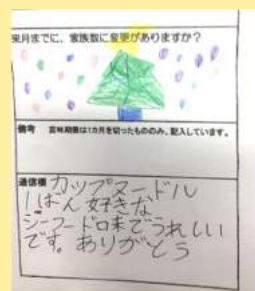 来月までに、家族数に変更がありますか？
備考　賞味期限は1カ月を切ったもののみ、記入しています。
通信欄 カップヌードル
1ばん好きな
シーフード味でうれしい
です。ありがとう